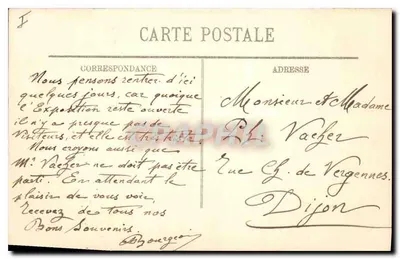 I
CARTE POSTALE
CORRESPONDANCE
ADRESSE
Nous pensons rentrer d'ici
quelques jours, car quoique
l'Exposition reste ouverte
il n'y a presque pas de
visiteurs, et elle est
Nous croyons aussi que
Mr Vaeger ne doit pas être
parti. En attendant le
plaisir de vous voir,
Recevez de tous nos
Bons Souvenirs.
Bourgeois
Monsieur et Madame
Ph. Vaeger
rue Ch. de Vergennes
Dijon